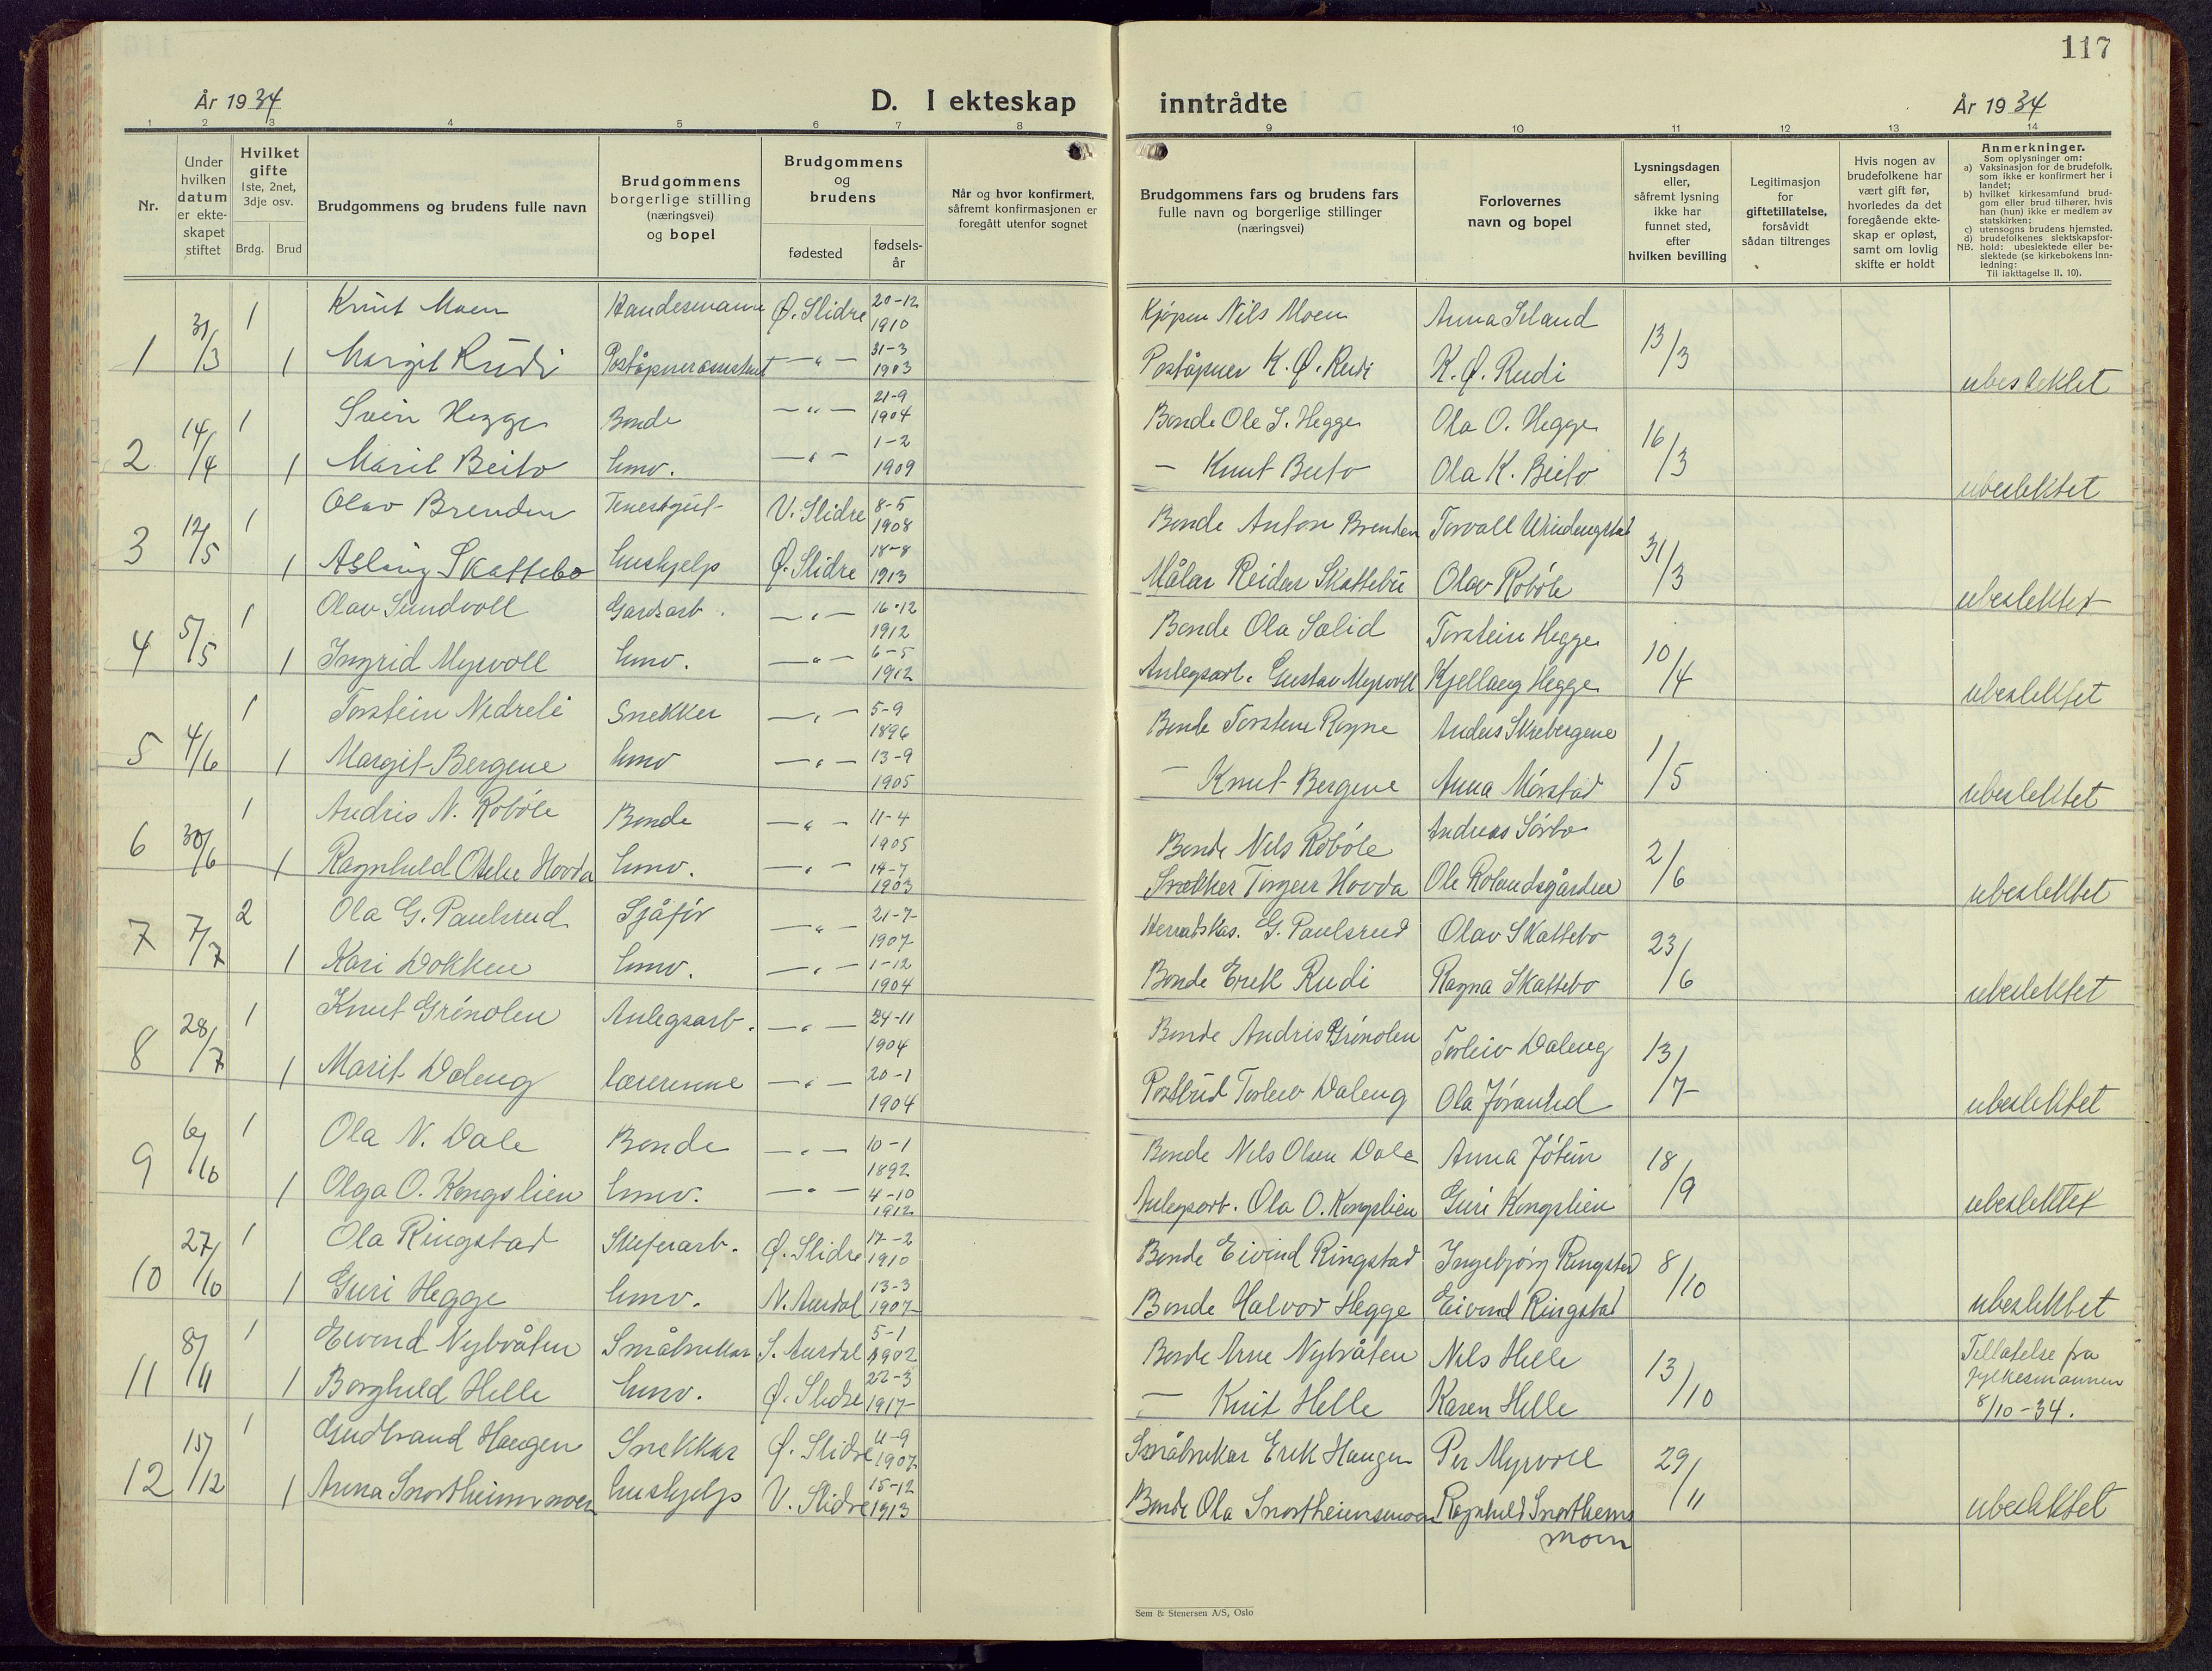 117
År 1934
D. I ekteskap inntrådte
År 1934
1 2 3 4 5 6 7 8 9 10 11 12 13 14
Nr.
Under hvilken datum er ekte-skapet stiftet
Hvilket gifte 1ste, 2net, 3dje osv.
Brdg. Brud
Brudgommens og brudens fulle navn
Brudgommens borgerlige stilling (næringsvei) og bopel
Brudgommens og brudens
fødested
fødsels-år
Når og hvor konfirmert, såfremt konfirmasjonen er foregått utenfor sognet
Brudgommens fars og brudens fars fulle navn og borgerlige stillinger (næringsvei)
Forlovernes navn og bopel
Lysningsdagen eller, såfremt lysning ikke har funnet sted, efter hvilken bevilling
Legitimasjon for giftetillatelse, forsåvidt sådan tiltrenges
Hvis nogen av brudefolkene har vært gift før, hvorledes da det foregående ekte-skap er opløst, samt om lovlig skifte er holdt
Anmerkninger.
Som oplysninger om:
a) Vaksinasjon for de brudefolk, som ikke er konfirmert her i landet;
b) hvilket kirkesamfund brud-gom eller brud tilhører, hvis han (hun) ikke er medlem av statskirken;
c) utensogns brudens hjemsted.
d) brudefolkenes slektskapsfor-hold: ubeslektede eller be-slektede (se kirkebokens Inn-ledning:
NB. Til iakttagelse II, 10).
31/3 1 Knut Moen Ø. Slidre 20-12 1910 Kjøpm Nils Moen 13/3
1 1 Margit Rudi — " — 31-3 1903 Poståpner K. Ø. Rudi K. Ø. Rudi ubeslektet
14/4 1 Svein Hegge Bonde — " — 21-9 1904 Bonde Ole S. Hegge Ola O. Hegge 16/3
2 1 Marit Beito hmv. — " — 1-2 1909 — Knut Beito Ola K. Beito ubeslektet
12/5 1 Olav Brenden V. Slidre 8-5 1908 Bonde Anton Brenden 31/3
3 1 Aslaug Skattebo hushjelp Ø. Slidre 18-8 1913 Målar Reidar Skattebu Olav Robøle ubeslektet
5/5 1 Olav Sundvoll Gardsarb. — " — 16-12 1912 Bonde Ola Solid Torstein Hegge 10/4
4 1 Ingrid Myrvoll hmv. — " — 6-5 1912 Anlegsarb. Gustav Myrvoll Kjellaug Hegge ubeslektet
4/6 1 Torstein Nedreli Snekker — " — 5-9 1896 Bonde Torstein Rogne Anders Skrebergene 1/5
5 1 Margit Bergene hmv — " — 13-9 1905 — Knut Bergene Anna Mørstad ubeslektet
30/6 1 Andris N. Robøle Bonde — " — 11-4 1905 Bonde Nils Robøle Andreas Sørbo 2/6
6 1 Ragnhild Hovda hmv. — " — 14-7 1903 Snekker Torgeir Hovda Ole Rolandsgården ubeslektet
7/7 2 Ola G. Paulsrud Sjåfør — " — 21-7 1907 Heradskas. G. Paulsrud Olav Skattebo 23/6
7 1 Kari Dokken hmv. — " — 1-12 1904 Bonde Erik Rudi Ragna Skattebo ubeslektet
28/7 1 Knut Grønolen Anlegsarb. — " — 24-11 1904 Bonde Andris Grønolen Torleiv Daleng 13/7
8 1 Marit Daleng lærerinne — " — 20-1 1904 Postbud Torleiv Daleng Ola ubeslektet
6/10 1 Ola N. Dale Bonde — " — 10-1 1892 Bonde Nils Olsen Dale Anna Jøtun 18/9
9 1 Olga O. Kongslien hmv. — " — 4-10 1912 Anlegsarb. Ola O. Kongslien Guri Kongslien ubeslektet
27/10 1 Ola Ringstad Skiferarb. Ø. Slidre 17-2 1910 Bonde Eivind Ringstad Ingebjørg Ringstad 8/10
10 1 Guri Hegge hmv. N. Aurdal 13-3 1907 Bonde Halvor Hegge Eivind Ringstad ubeslektet
8/11 1 Eivind Nybråten Småbrukar S. Aurdal 5-1 1902 Bonde Arne Nybråten Nils Helle 13/10 Tillatelse fra fylkesmannen
11 1 Borghild Helle hmv. Ø. Slidre 22-3 1917 — Knut Helle Karen Helle 8/10-34.
15/12 1 Gudbrand Haugen Snekkar Ø. Slidre 11-9 1907 Småbrukar Erik Haugen Per Myrvoll 29/11
12 1 Anna Snortheimsmoen hushjelp V. Slidre 15-12 1913 Bonde Ola Snortheimsmoen Ragnhild Snortheims ubeslektet
moen
Sem & Stenersen A/S, Oslo